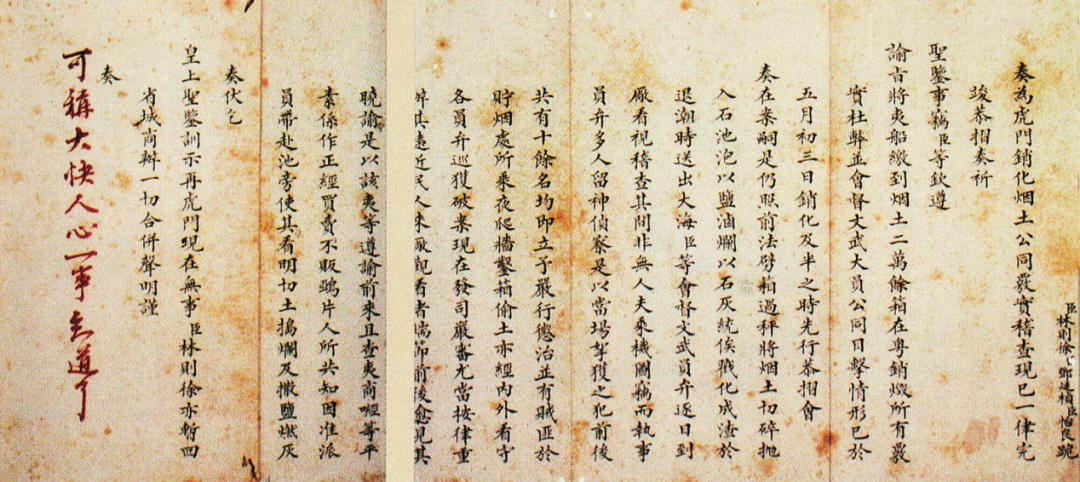 臣林則徐臣鄧廷楨臣怡良跪
奏為虎門銷化烟土公同覈實稽查現已一律完
竣恭摺奏祈
聖鑒事竊臣等欽遵
諭旨將夷船繳到烟土二萬餘箱在粵銷燬所有覈
實杜弊並會督文武大員公同目擊情形已於
五月初三日銷化及半之時先行恭摺會
奏在案嗣是仍照前法劈箱過秤將烟土切碎拋
入石池泡以鹽滷爛以石灰統俟戮化成渣於
退潮時送出大海臣等會督文武員弁逐日到
廠看視稽查其間非無人夫乘機圖竊而執事
員弁多人留神偵察是以當場拏獲之犯前後
共有十餘名均即立予嚴行懲治並有賊匪於
貯烟處所乘夜爬牆鑿箱偷土亦經內外看守
各員弁巡獲破案現在發司嚴審尤當按律重
辦其遠近民人來廠觀看者端節前後愈見其
曉諭是以該夷等遵諭前來且查夷商等平
素係作正經買賣不販鴉片人所共知因准派
員帶赴池旁使其看明切土搗爛及撒鹽燃灰
奏伏乞
皇上聖鑒訓示再虎門現在無事臣林則徐亦暫回
省城商辦一切合併聲明謹
奏
可稱大快人心一事知道了